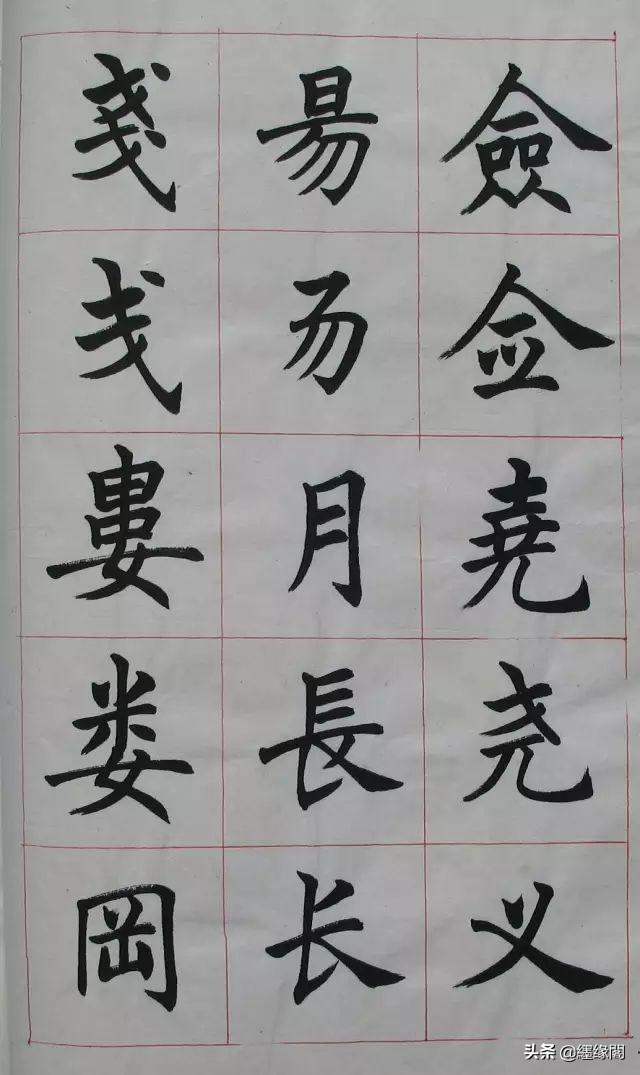 僉佥堯尧义
昜𠃓月長长
戔戋婁娄岡
头条